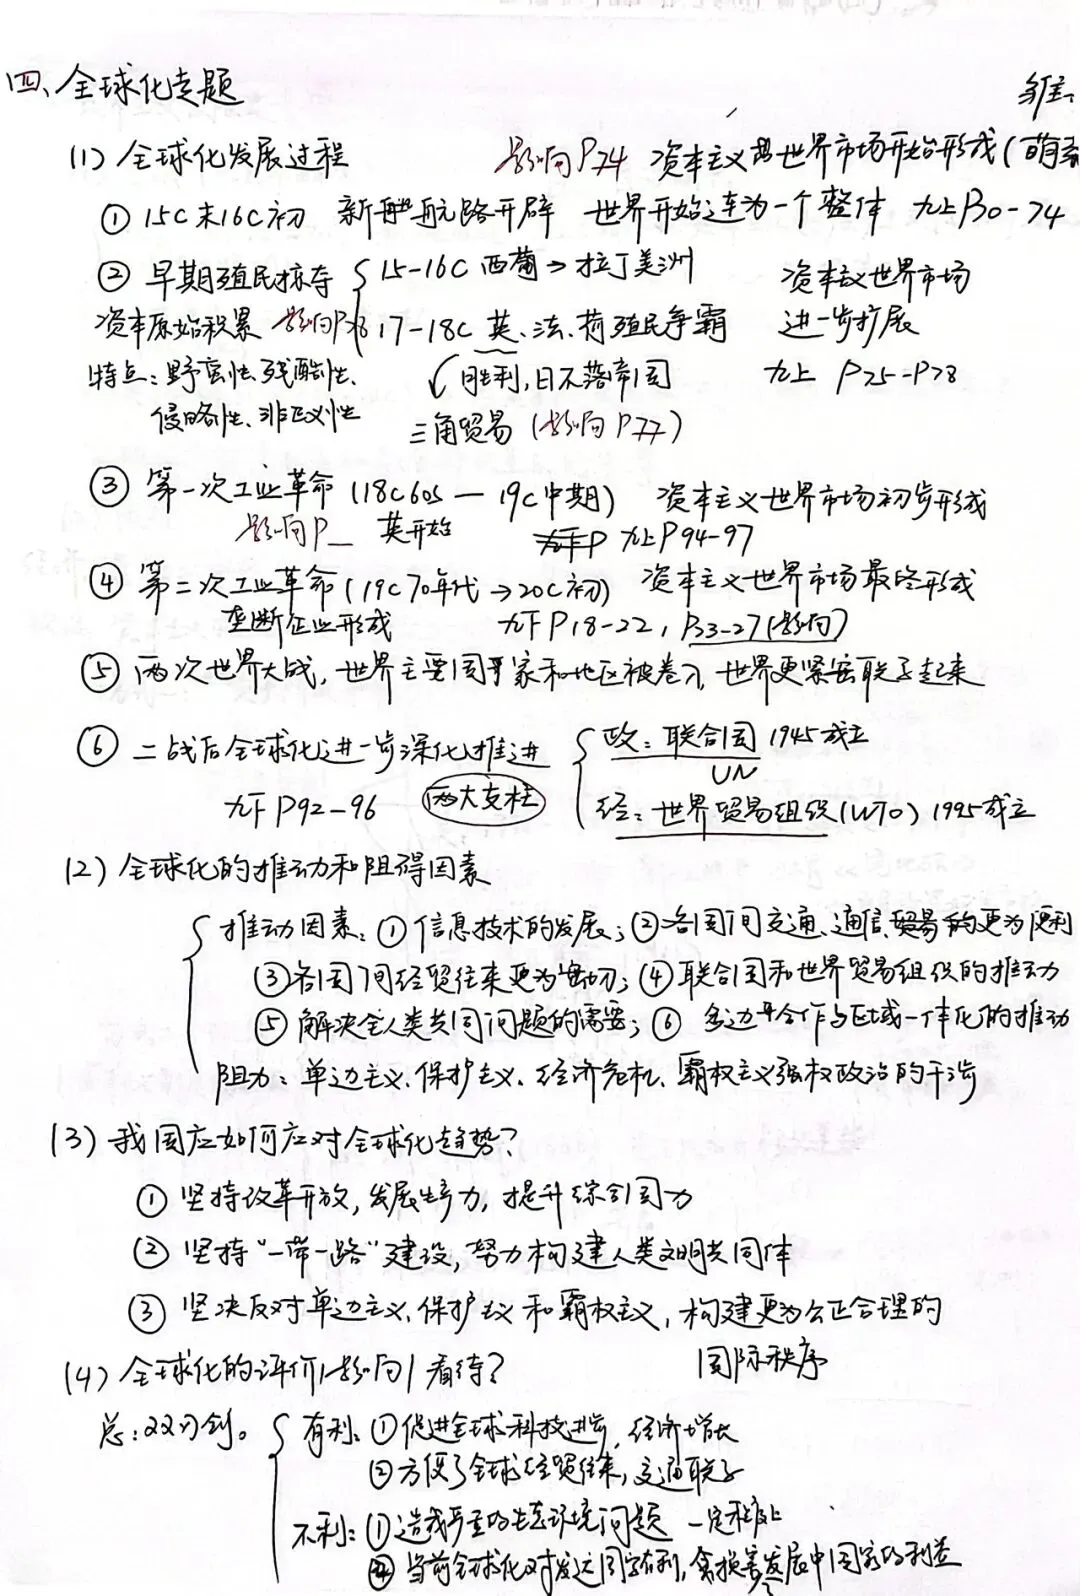 四、全球化专题
(1) 全球化发展过程 影响P74 资本主义世界市场开始形成(萌
① 15C末16C初 新航路开辟 世界开始连为一个整体 九上P30-74
② 早期殖民掠夺 { 15-16C 西葡→拉丁美洲 资本主义世界市场
资本原始积累 影响P 17-18C 英、法、荷殖民争霸 进一步扩展
特点:野蛮性、残酷性、 胜利,日不落帝国 九上 P75-P78
侵略性、非正义性 三角贸易(影响P77)
③ 第一次工业革命(18C60s—19C中期) 资本主义世界市场初步形成
影响P_ 英开始 九上P94-97
④ 第二次工业革命(19C70年代→20C初) 资本主义世界市场最终形成
垄断企业形成 九下P18-22,P23-27(影响)
⑤ 两次世界大战,世界主要国家和地区被卷入,世界更紧密联系起来
⑥ 二战后全球化进一步深化推进 { 政:联合国 1945成立
UN
九下P92-96 两大支柱 经:世界贸易组织(WTO)1995成立
(2) 全球化的推动和阻碍因素
推动因素:①信息技术的发展;②各国间交通、通信、贸易的更为便利
③各国间经贸往来更为密切;④联合国和世界贸易组织的推动
⑤解决全人类共同问题的需要;⑥多边合作与区域一体化的推动
阻力:单边主义、保护主义、经济危机、霸权主义强权政治的干涉
(3) 我国应如何应对全球化趋势?
① 坚持改革开放,发展生产力,提升综合国力
② 坚持“一带一路”建设,努力构建人类文明共同体
③ 坚决反对单边主义、保护主义和霸权主义,构建更为公正合理的
国际秩序
(4) 全球化的评价/影响/看待?
总:双刃剑。 { 有利:①促进全球科技进步,经济增长
②方便了全球经贸往来,交通联系
不利:①造成严重的生态环境问题 一定程度上
② 当前全球化对发达国家有利,会损害发展中国家的利益